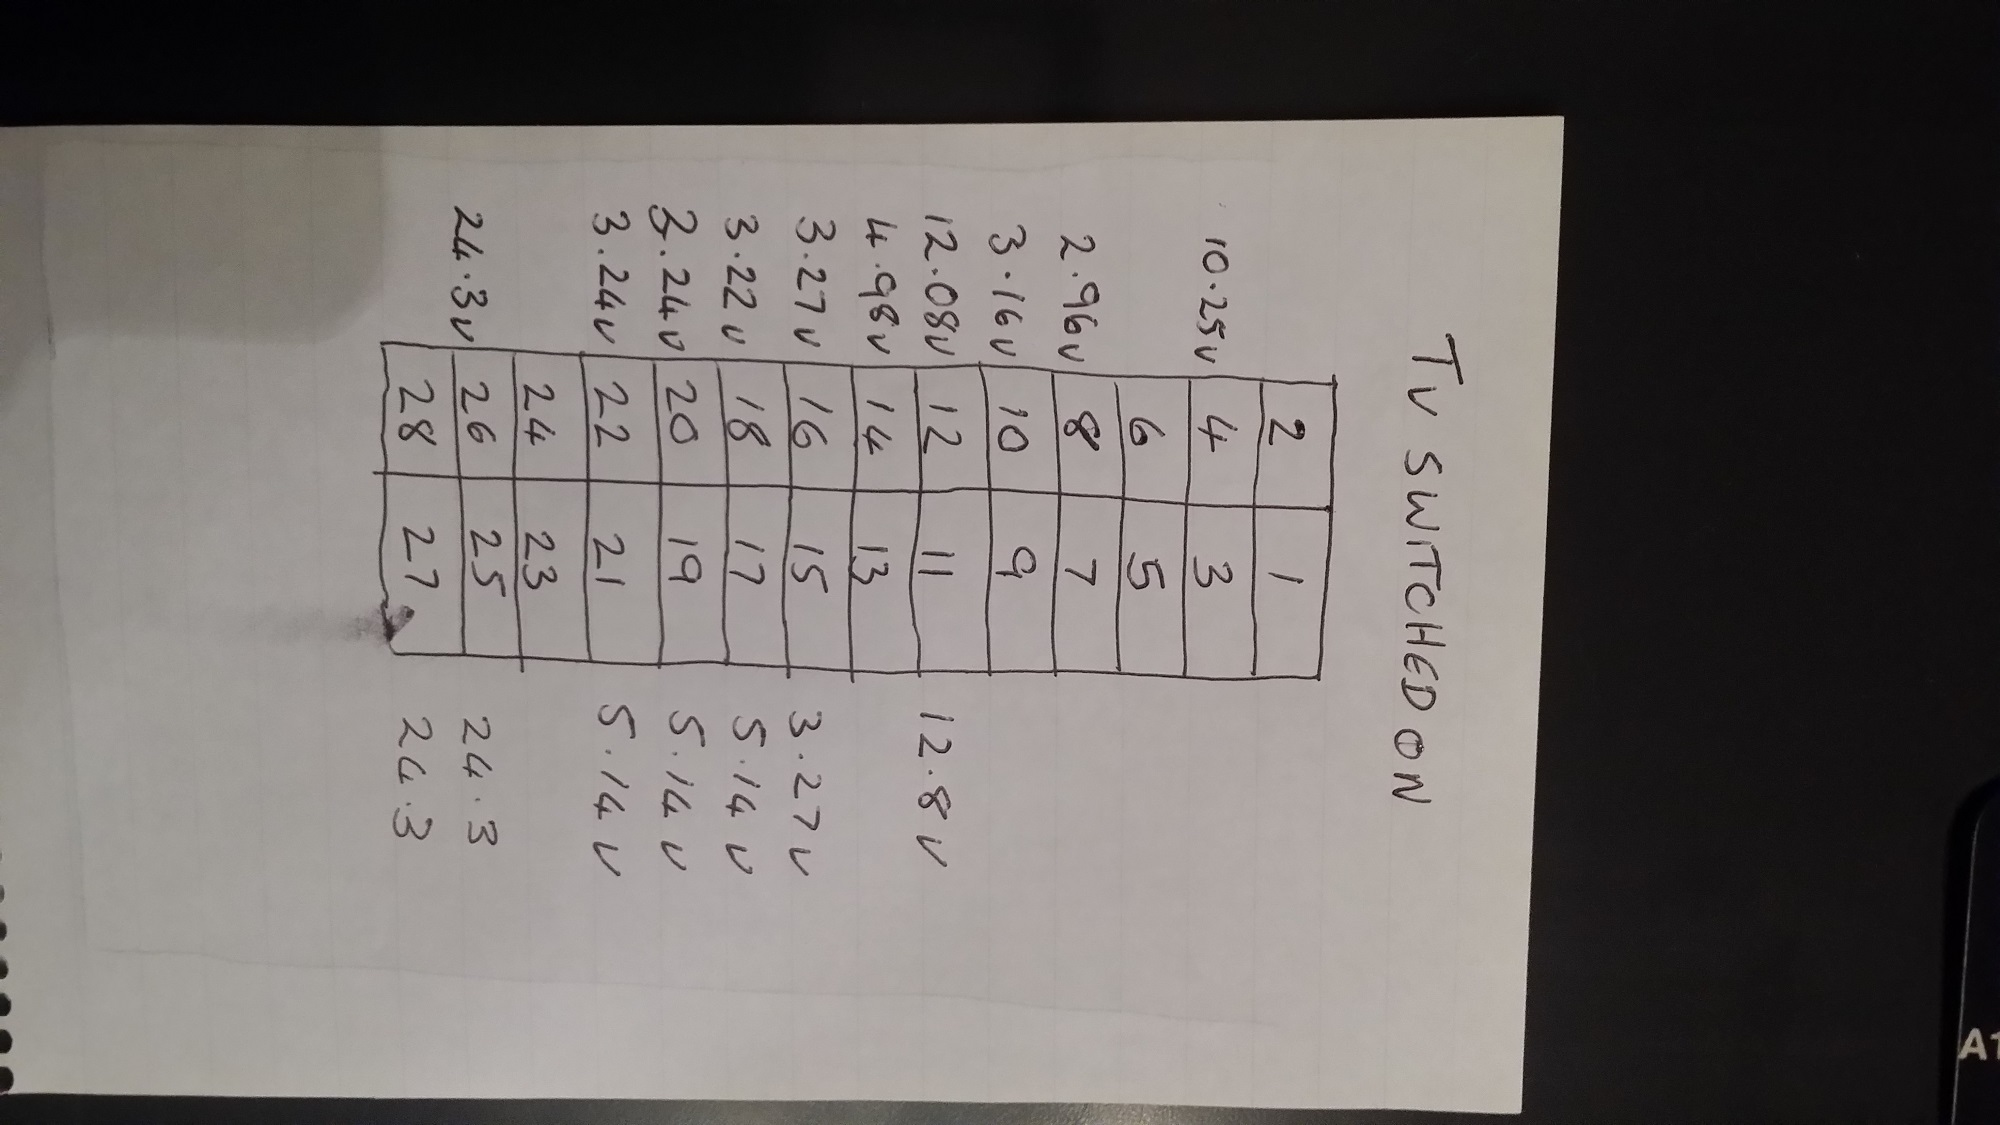 TV SWITCHED ON
2 1
10.25v 4 3
6 5
2.96v 8 7
3.16v 10 9
12.08v 12 11 12.8v
4.98v 14 13
3.27v 16 15 3.27v
3.22v 18 17 5.14v
20 19 5.14v
3.24v 22 21 5.14v
24 23
24.3v 26 25 24.3
28 27 24.3